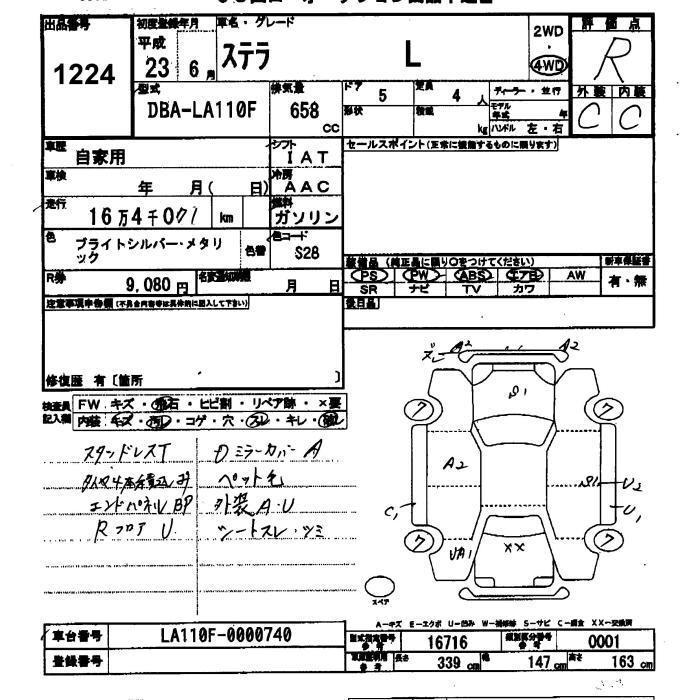 出品番号
1224
初度登録年月
平成
23 6月
車名・グレード
ステラ L
2WD
・
4WD
評価点
R
外装 内装
C C
型式
DBA-LA110F
排気量
658
cc
ドア 5
定員 4 人
形状
積載 kg
ディーラー・並行
モデル年式 年
ハンドル 左・右
車歴
自家用
シフト
IAT
車検
年 月( 日)
冷房
AAC
走行
16万4千071 km
燃料
ガソリン
色
ブライトシルバー・メタリ
ック
色替
色コード
S28
R券
9,080円
名変通知期限
月 日
セールスポイント(正常に機能するものに限ります)
装備品 (純正品に限り○をつけてください)
新車保証書
PS PW ABS エアB AW
SR ナビ TV カワ
有・無
後日品
注意事項申告欄(不具合内容等は具体的に記入して下さい)
修復歴 有〔箇所 〕
検査員
記入欄
FW キズ・飛石・ヒビ割・リペア跡・×要
内装 キズ・汚レ・コゲ・穴・スレ・キレ・破レ
スタンドレスT
エンドパネルBP
RフロアU
DミラーカバーA
ペット毛
外装A・U
シートスレ・シミ
ズレ A2 A2
S1
7 7
A2
S1 U2
C1 U1
7 7
UA1
XX
スペア
A−キズ E−エクボ U−凹み W−補修跡 S−サビ C−腐食 XX−交換済
車台番号
LA110F-0000740
登録番号
型式指定番号
参考
16716
類別区分番号
参考
0001
参考
長さ 339cm
幅 147cm
高さ 163cm